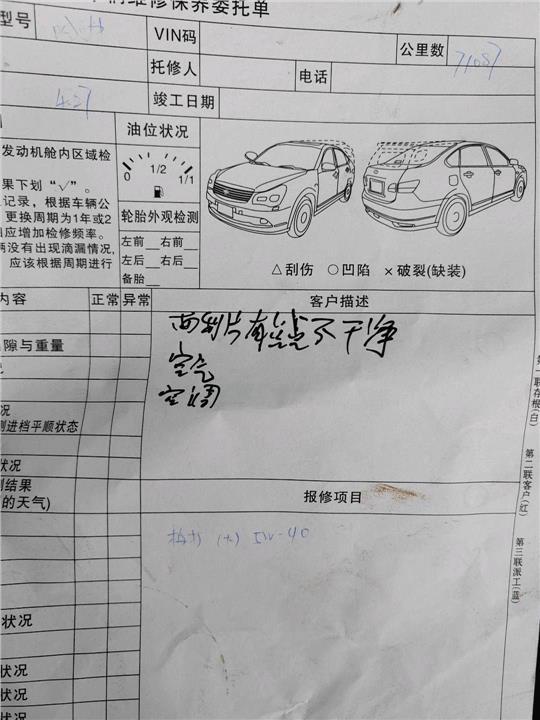 维修保养委托单
型号
VIN码
公里数 71087
托修人
电话
4.27
竣工日期
发动机舱内区域检
果下划“√”。
记录，根据车辆公
更换周期为1年或2
相应增加检修频率。
辆没有出现滴漏情况，
应该根据周期进行
油位状况
0 1/2 1/1
轮胎外观检测
左前__右前__
左后__右后__
备胎__
△刮伤 ○凹陷 ×破裂(缺装)
内容 正常 异常 客户描述
雨刮片有点不干净
空气
空调
隙与重量
况
况
进档平顺状态
状况
结果
的天气)
报修项目
5W-40
状况
状况
状况
状况
第一联存根(白)
第二联客户(红)
第三联派工(蓝)